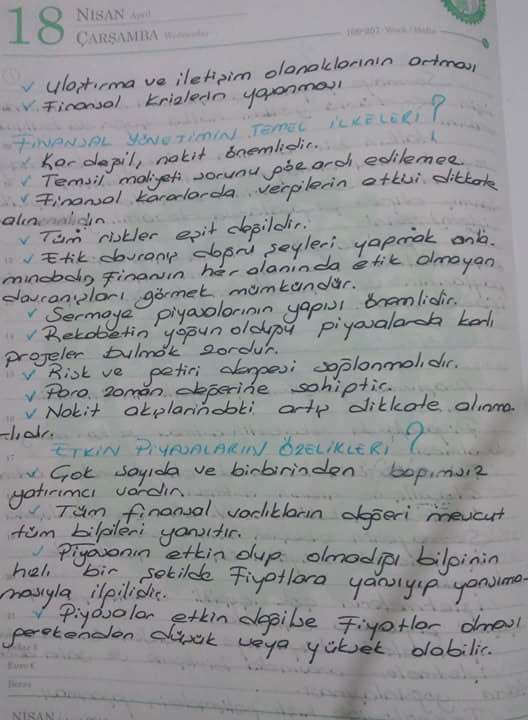 18 NİSAN April
ÇARŞAMBA Wednesday
108-257 · Week / Hafta
✓ Ulaştırma ve iletişim olanaklarının artması
✓ Finansal krizlerin yaşanması
FİNANSAL YÖNETİMİN TEMEL İLKELERİ ?
✓ Kar değil, nakit önemlidir.
✓ Temsil maliyeti sorunu göz ardı edilemez.
✓ Finansal kararlarda vergilerin etkisi dikkate
alınmalıdır.
✓ Tüm riskler eşit değildir.
✓ Etik davranış doğru şeyleri yapmak anla-
mındadır, Finansın her alanında etik olmayan
davranışları görmek mümkündür.
✓ Sermaye piyasalarının yapısı önemlidir.
✓ Rekabetin yoğun olduğu piyasalarda karlı
projeler bulmak zordur.
✓ Risk ve getiri dengesi sağlanmalıdır.
✓ Para zaman değerine sahiptir.
✓ Nakit akışlarındaki artış dikkate alınma-
lıdır.
ETKİN PİYASALARIN ÖZELİKLERİ ?
✓ Çok sayıda ve birbirinden bağımsız
yatırımcı vardır.
✓ Tüm finansal varlıkların değeri mevcut
tüm bilgileri yansıtır.
✓ Piyasanın etkin olup olmadığı bilginin
hızlı bir şekilde Fiyatlara yansıyıp yansıma-
masıyla ilgilidir.
✓ Piyasalar etkin değilse Fiyatlar olması
gerekenden düşük veya yüksek olabilir.
Euro €
Borsa
NİSAN